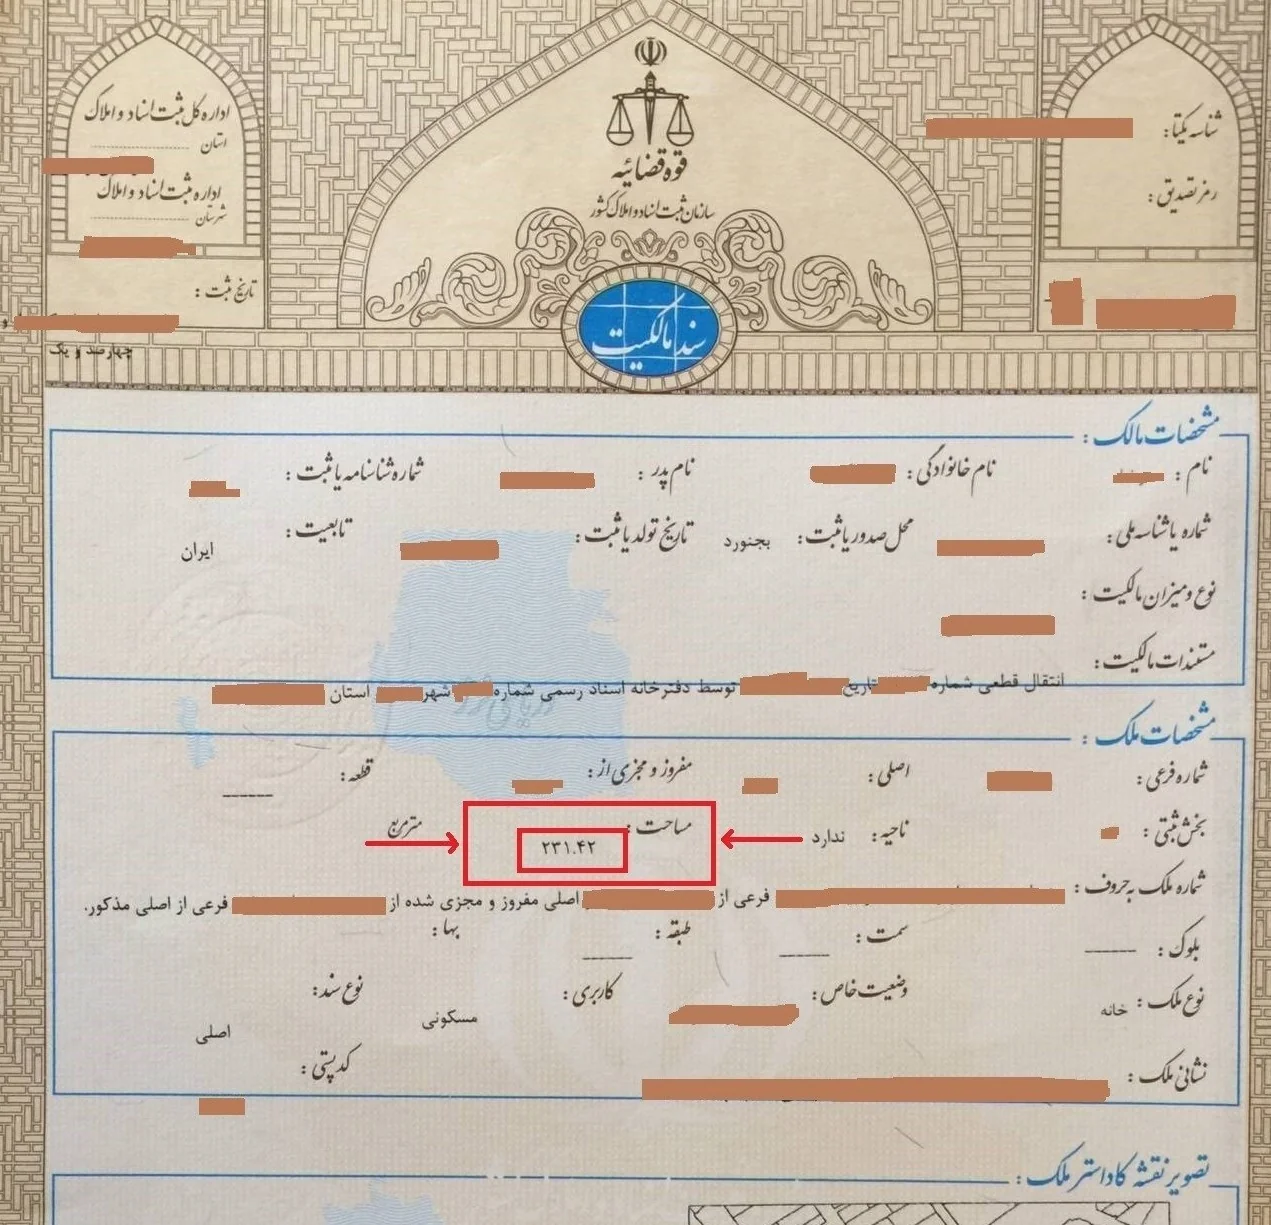 قوه قضائیه
سازمان ثبت اسناد و املاک کشور
سند مالکیت
شناسه یکتا:
رمز تصدیق:
اداره کل ثبت اسناد و املاک
استان
اداره ثبت اسناد و املاک
شهرستان
تاریخ ثبت:
و
چهارصد و یک
مشخصات مالک:
نام: نام خانوادگی: نام پدر: شماره شناسنامه یا ثبت:
شماره یا شناسه ملی: محل صدور یا ثبت: بجنورد تاریخ تولد یا ثبت: تابعیت: ایران
نوع و میزان مالکیت:
مستندات مالکیت:
انتقال قطعی شماره تاریخ توسط دفترخانه اسناد رسمی شماره شهر استان
مشخصات ملک:
شماره فرعی: اصلی: مفروز و مجزی از: قطعه:
بخش ثبتی: ناحیه: ندارد مساحت: ۲۳۱.۴۲ مترمربع
شماره ملک به حروف: فرعی از اصلی مفروز و مجزی شده از فرعی از اصلی مذکور.
بلوک: سمت: طبقه: بها:
نوع ملک: خانه وضعیت خاص: کاربری: مسکونی نوع سند: اصلی
نشانی ملک: کد پستی:
تصویر نقشه کاداستر ملک: